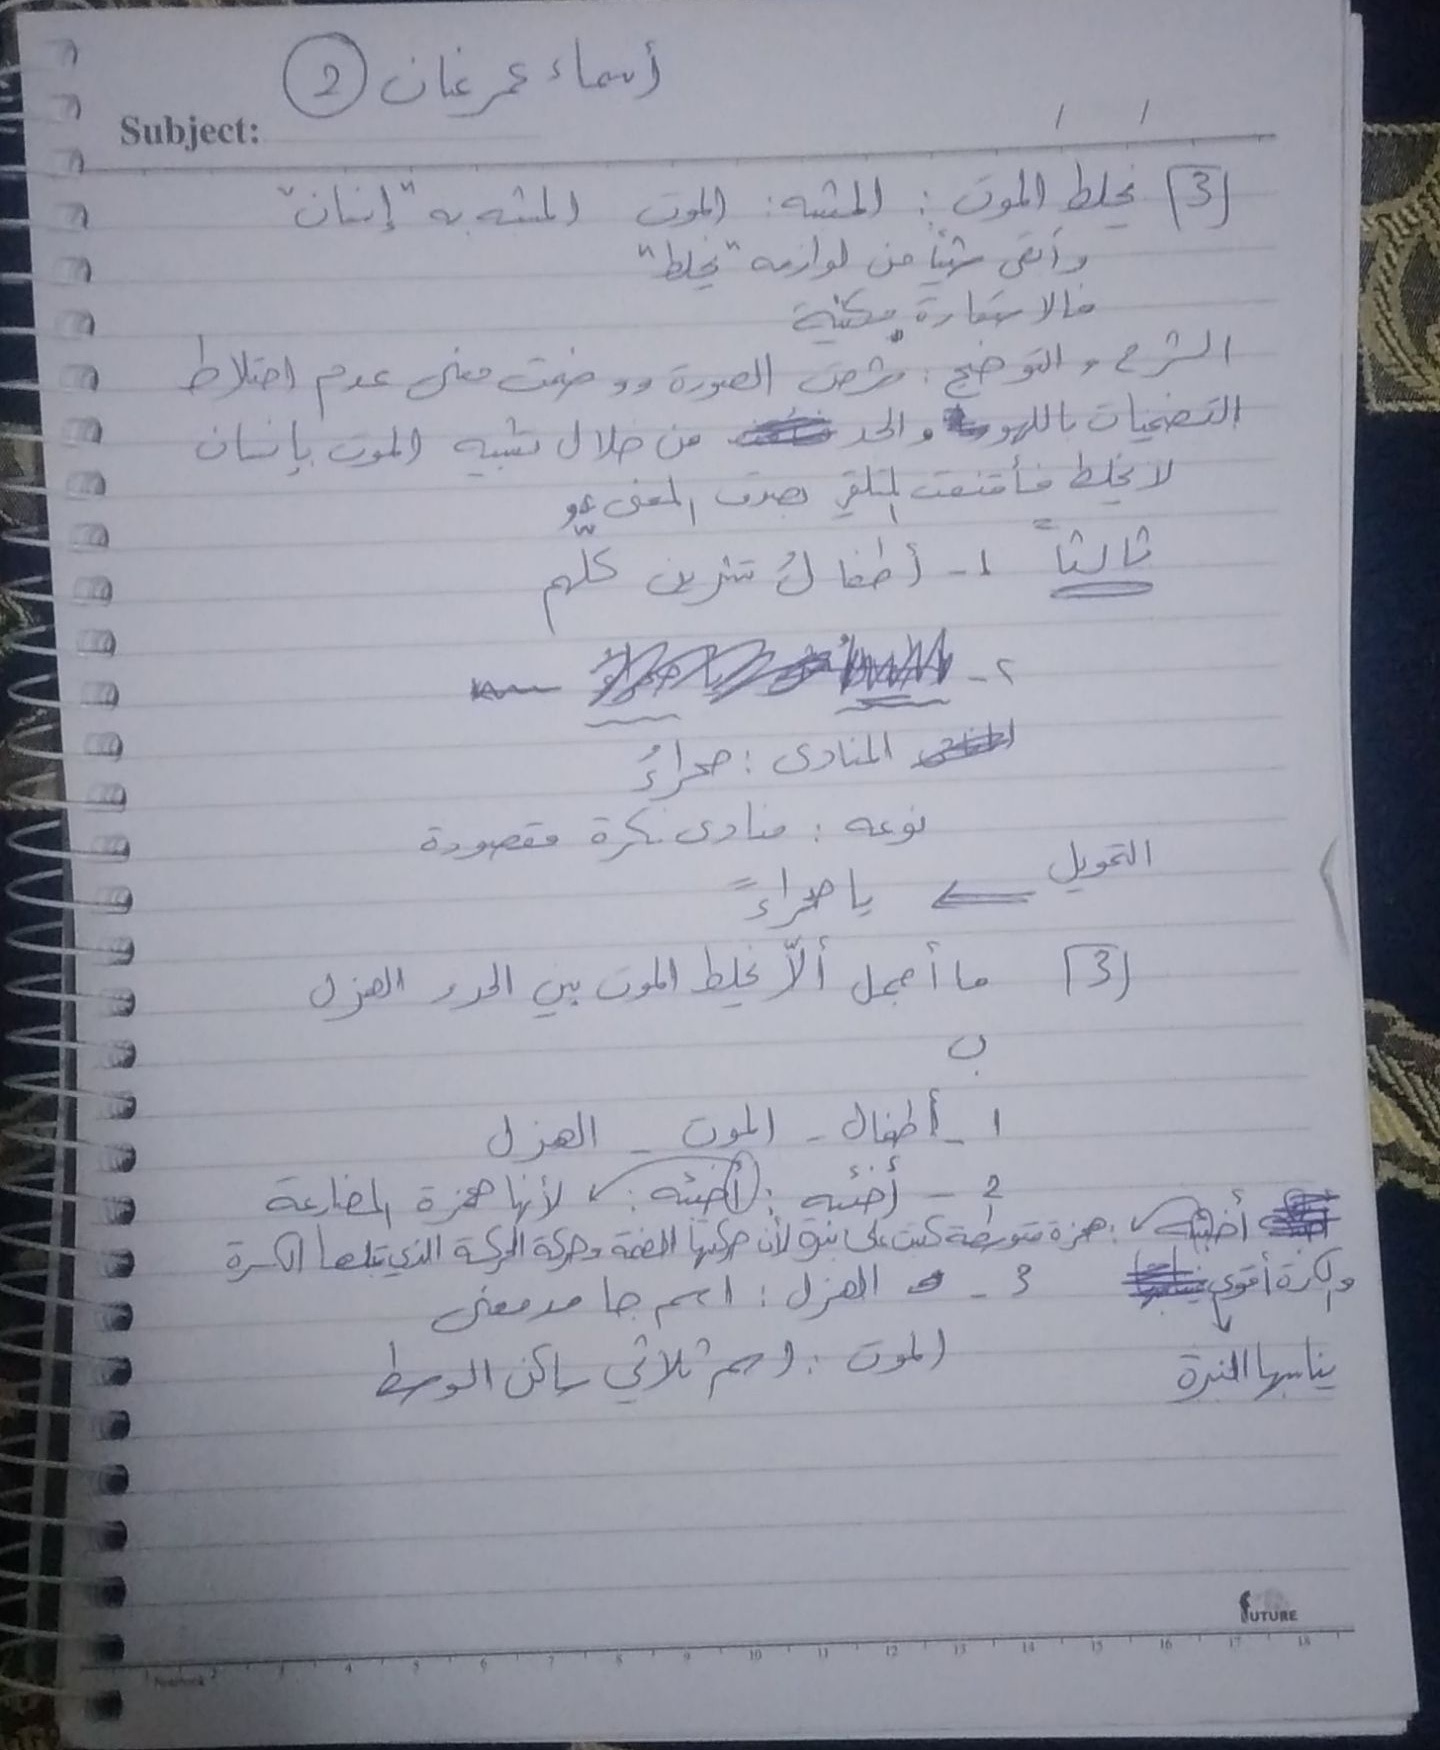 أسماء عمر غان ②
Subject:
/ /
[3] يخلط الموت : المشبه : الموت المشبه به "إنسان"
وأبقى شيئاً من لوازمه "يخلط"
فالاستعارة مكنية
الشرح والتوضيح : شرحت الصورة ووضحت معنى عدم اختلاط
التضحيات باللهو والجد من خلال تشبيه الموت بإنسان
لا يخلط فأقنعت المتلقي بصدق المعنى
ثالثاً 1- أطفالُ تشرين كلّهم
٢-
المنادى : صحراءُ
نوعه : منادى نكرة مقصودة
التحويل ← يا صحراءً
[3] ما أجمل ألّا يخلط الموت بين الجد و الهزل
ب
1- أطفال - الموت - الهزل
2 - أخبئه : أخبئه : لأنها همزة المضارعة
أخبئه : همزة متوسطة كتبت على نبرة لأن حركتها الضمة وحركة الحركة الذي قبلها الكسرة
والكسرة أقوى
يناسبها النبرة
3 - الهزل : اسم جامد معنى
الموت : اسم ثلاثي ساكن الوسط
FUTURE
Notebook 2 3 4 5 6 7 8 9 10 11 12 13 14 15 16 17 18